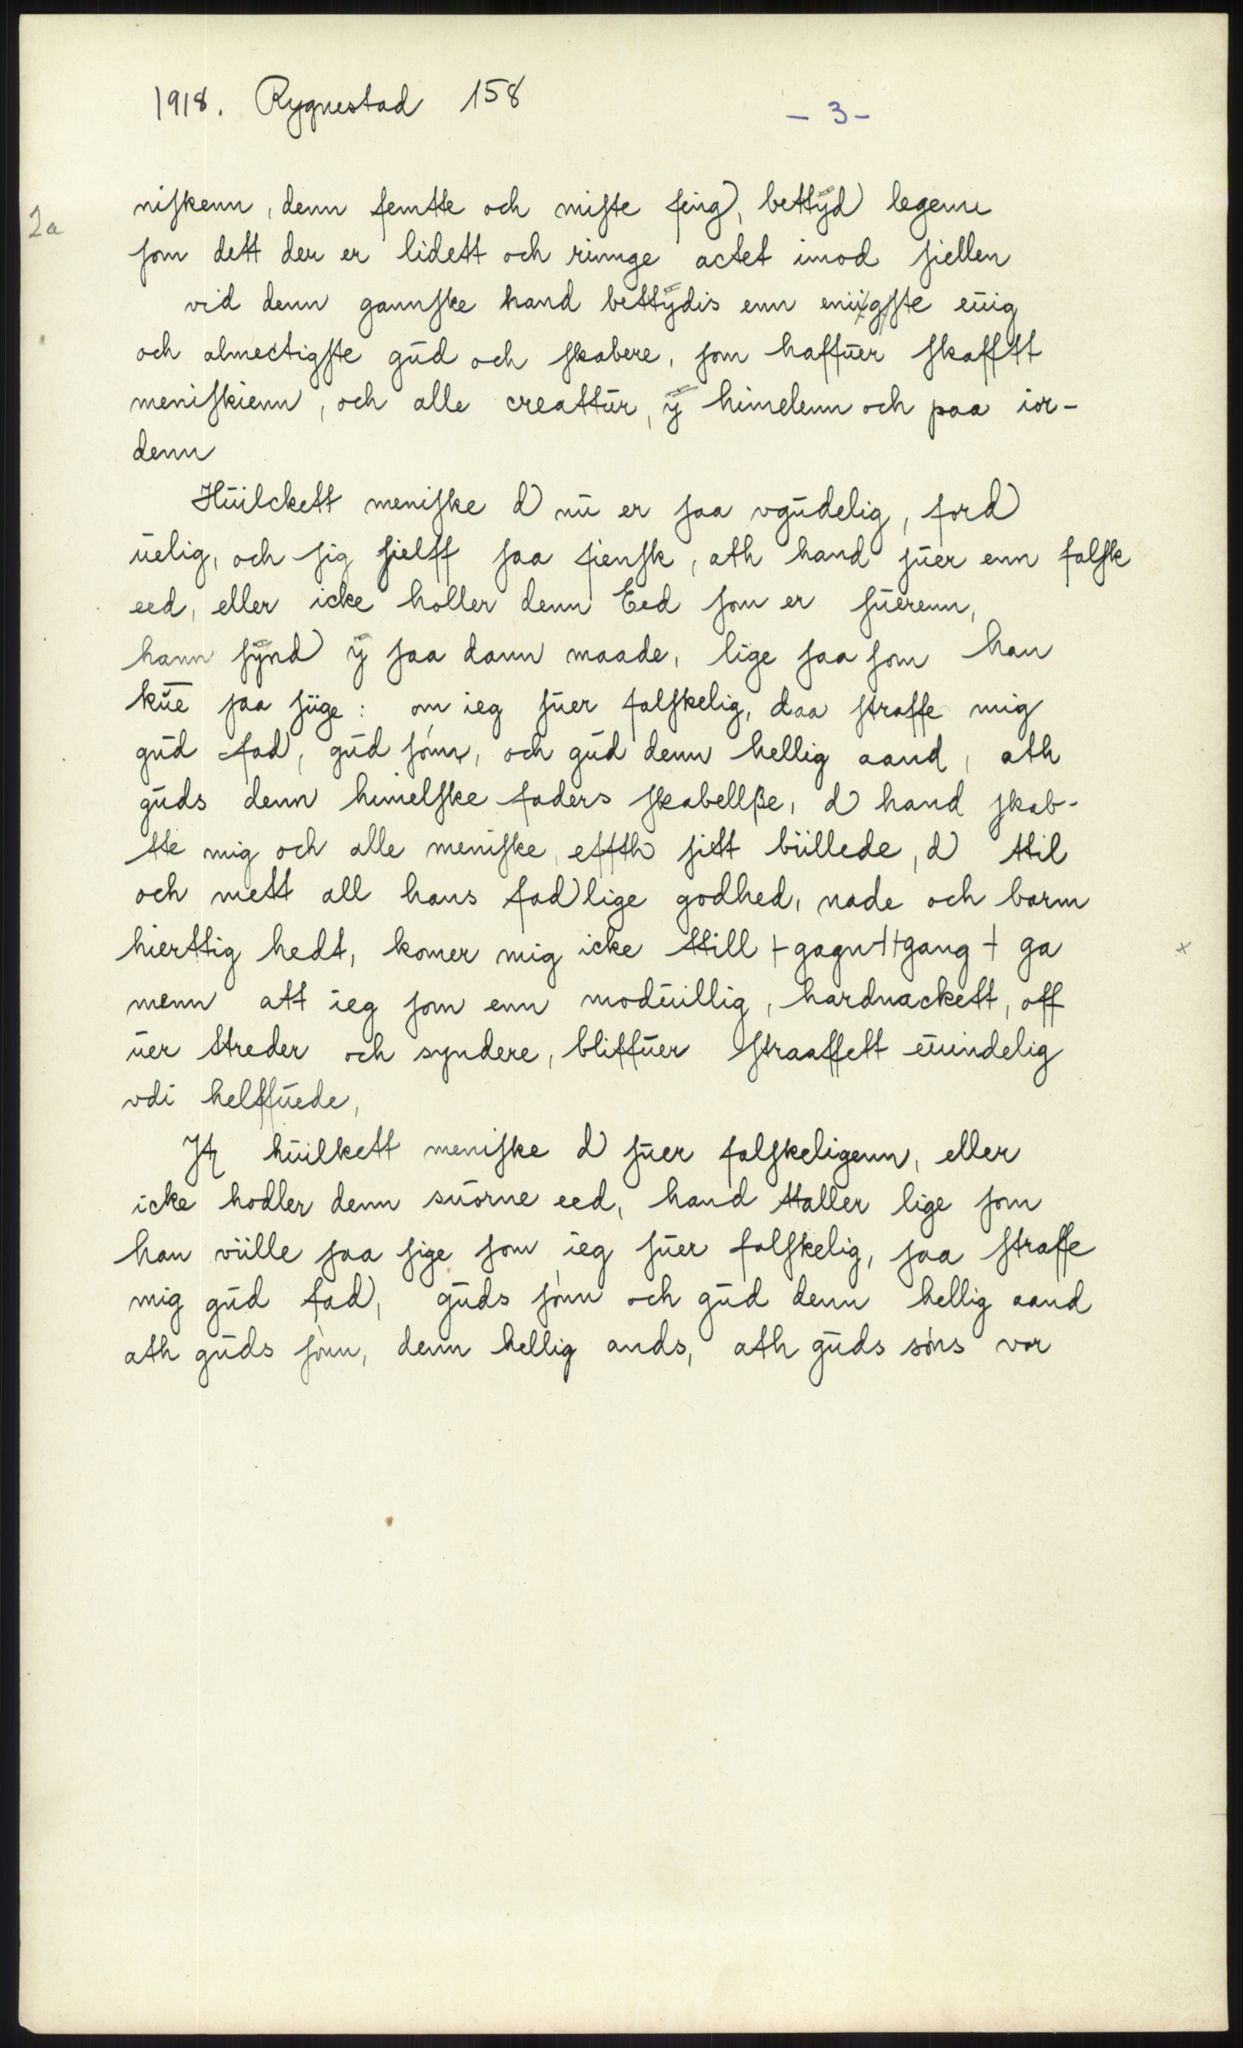 1918. Rygnestad 158
- 3 -
2a
niſkenn, denn femtte och miſte feing, bettÿd legeme
ſom dett der er lidett och ringe actet imod ſiellen
vid denn gannſke hand bettÿdis enn eniigſte euig
och almectigſte gŭd och ſkabere, ſom haffŭer ſkafftt
meniſkienn, och alle creattŭr, ÿ himelenn och paa ior-
denn
Hŭilckett meniſke d nŭ er ſaa vgŭdelig, ford
ŭelig, och ſig ſielff ſaa fienſk, ath hand ſŭer enn falſk
eed, eller icke holler denn Eed ſom er ſŭerenn,
hann ſÿnd ÿ ſaa dann maade, lige ſaa ſom han
kŭe ſaa ſiige: om ieg ſŭer falſkelig, daa ſtraffe mig
gŭd fad, gŭd ſónn, och gŭd denn hellig aand, ath
gŭds denn himelſke faders ſkabellße, d hand ſkab-
tte mig och alle meniſke, effth ſitt biillede, d ttil
och mett all hans fadlige godhed, nade och barm
hierttig hedt, komer mig icke ttill + gagn ++ gang + ga
x
menn att ieg ſom enn modŭillig, hardnackett, off
ŭer ttreder och syndere, bliffŭer ſtraaffett eŭindelig
vdi helffŭede,
It hŭilkett meniſke d ſŭer falſkeligenn, eller
icke hodler denn sŭorne eed, hand ttaller lige ſom
han viille ſaa ſige ſom ieg ſŭer falſkelig, ſaa ſtraffe
mig gŭd fad, gŭds ſónn och gŭd denn hellig aand
ath gŭds ſónn, denn hellig ands, ath gŭds sóns vor